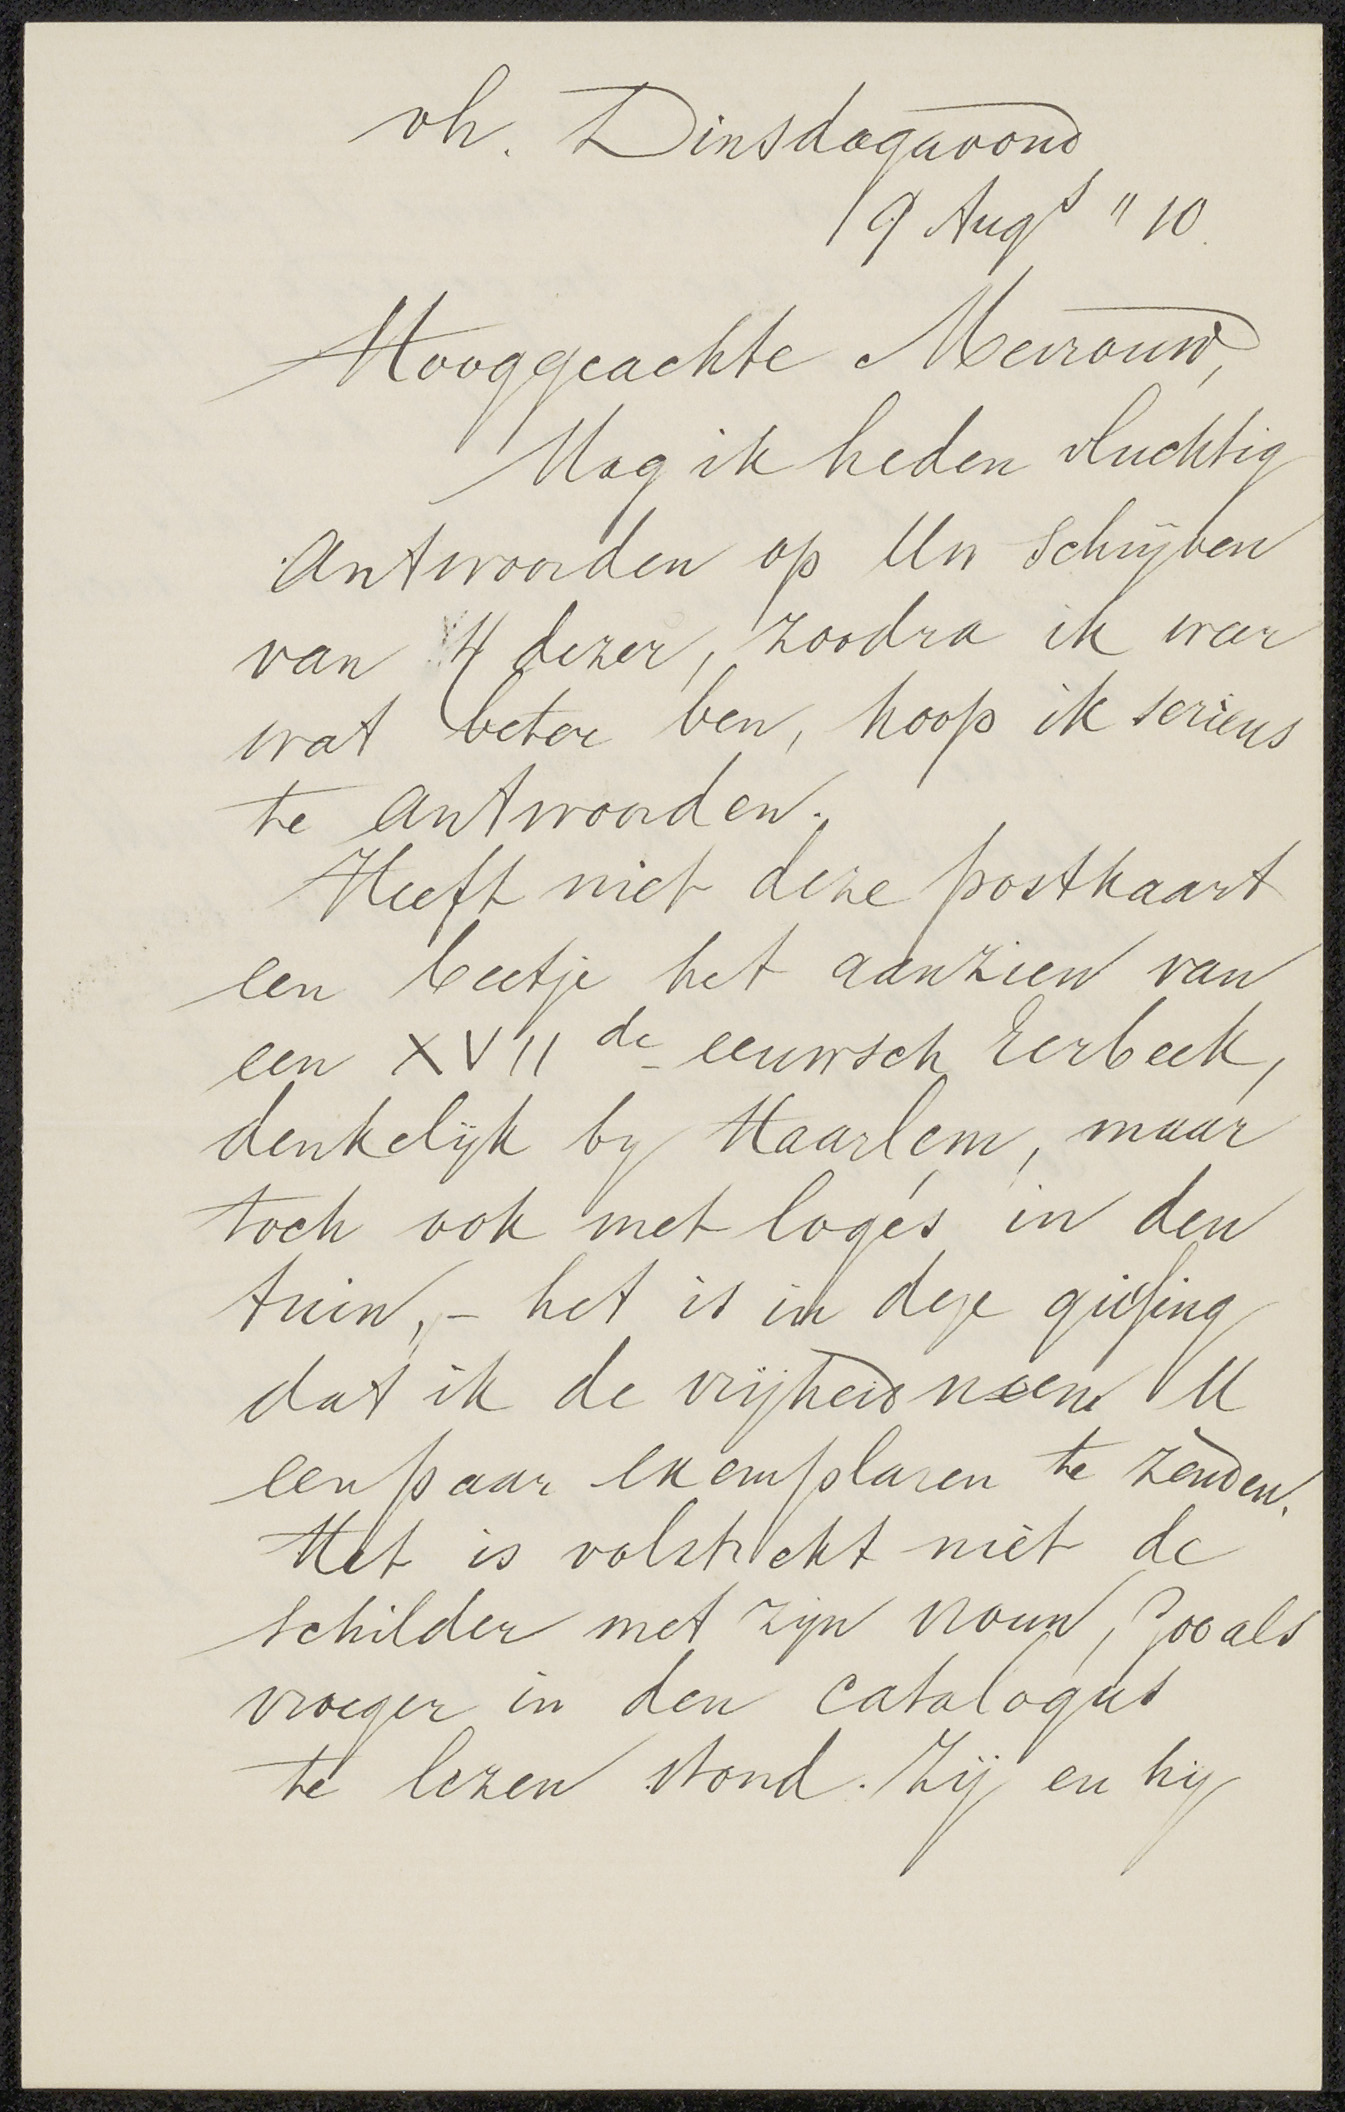 vh. Dinsdagavond
9 Augs " 10.
Hooggeachte Mevrouw,
Mag ik heden vluchtig
antwoorden op Uw schrijven
van 4 dezer, zoodra ik weer
wat beter ben, hoop ik serieus
te antwoorden.
Heeft niet deze postkaart
een beetje het aanzien van
een XVIIde eeuwsch Eerbeek,
denkelijk by Haarlem, maar
toch ook met logés in den
tuin, – het is in deze gissing
dat ik de vrijheid neem U
een paar exemplaren te zenden.
Het is volstrekt niet de
schilder met zijn vrouw, zooals
vroeger in den catalogus
te lezen stond. Zij en hij